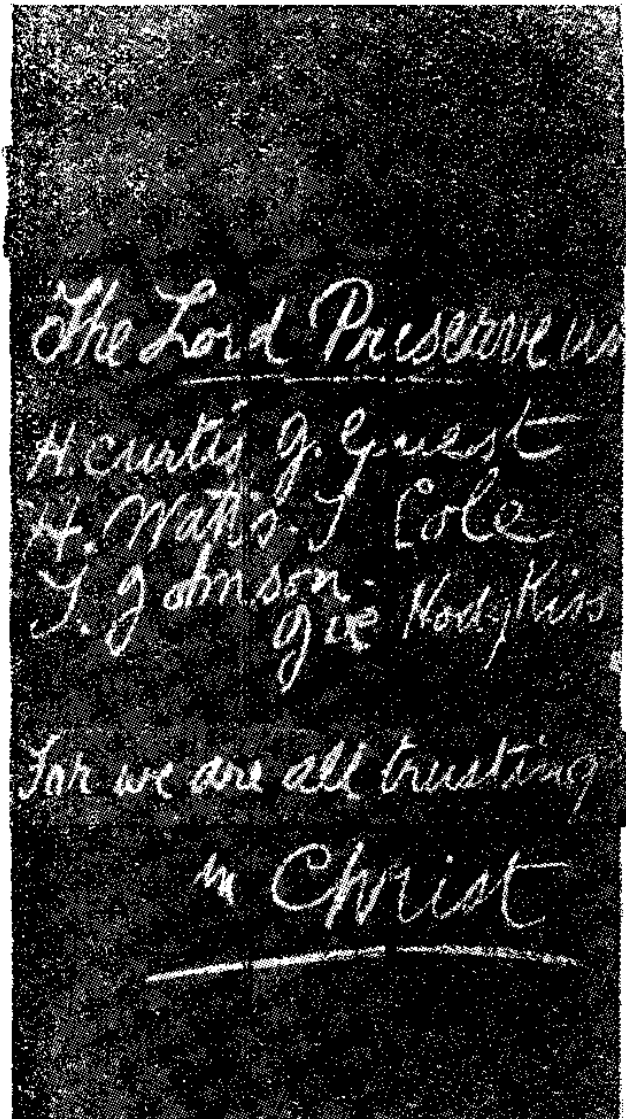 The Lord Preserve us
H. curtis J. Guest
H. Watts. J Cole
J. Johnson.
Hodgkiss
For we are all trusting
in Christ